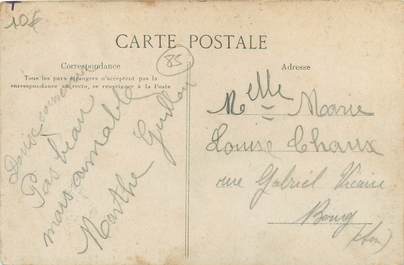 10€
CARTE POSTALE
85
Correspondance
Adresse
Tous les pays étrangers n'acceptent pas la
correspondance au recto, se renseigner à la Poste
Pas beau
mais aimable
Marthe
Melle Marie
Louise Chaux
rue Gabriel Vicaire
Bourg
(Ain)